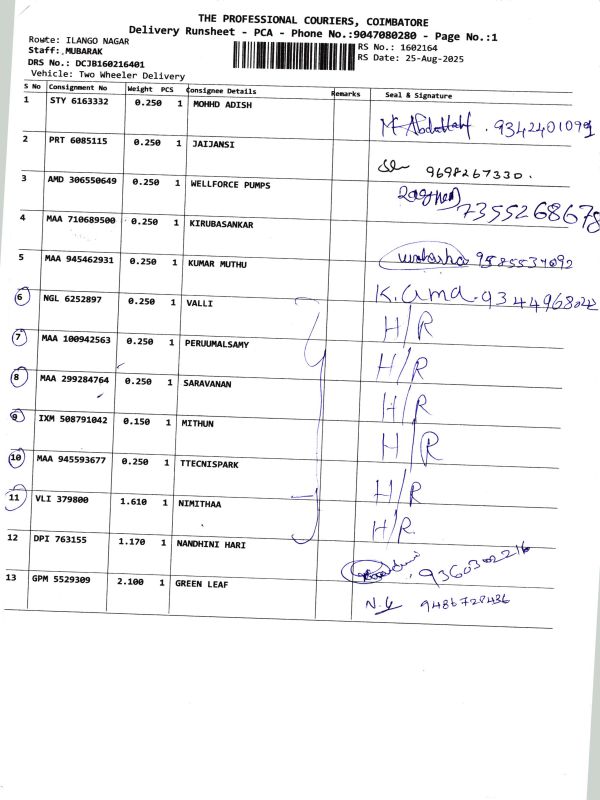 THE PROFESSIONAL COURIERS, COIMBATORE
Delivery Runsheet - PCA - Phone No.:9047080280 - Page No.:1
Route: ILANGO NAGAR
RS No.: 1602164
Staff: MUBARAK
RS Date: 25-Aug-2025
DRS No.: DCJB160216401
Vehicle: Two Wheeler Delivery
S No Consignment No Weight PCS Consignee Details Remarks Seal & Signature
1 STY 6163332 0.250 1 MOHHD ADISH
9342401099
2 PRT 6085115 0.250 1 JAIJANSI
9698267330.
3 AMD 306550649 0.250 1 WELLFORCE PUMPS
7355268678
4 MAA 710689500 0.250 1 KIRUBASANKAR
5 MAA 945462931 0.250 1 KUMAR MUTHU
K. uma
6 NGL 6252897 0.250 1 VALLI
H/R
7 MAA 100942563 0.250 1 PERUUMALSAMY
H/R
8 MAA 299284764 0.250 1 SARAVANAN
H/R
9 IXM 508791042 0.150 1 MITHUN
H/R
10 MAA 945593677 0.250 1 TTECNISPARK
H/R
11 VLI 379800 1.610 1 NIMITHAA
H/R
12 DPI 763155 1.170 1 NANDHINI HARI
9360302216
13 GPM 5529309 2.100 1 GREEN LEAF
9486728436